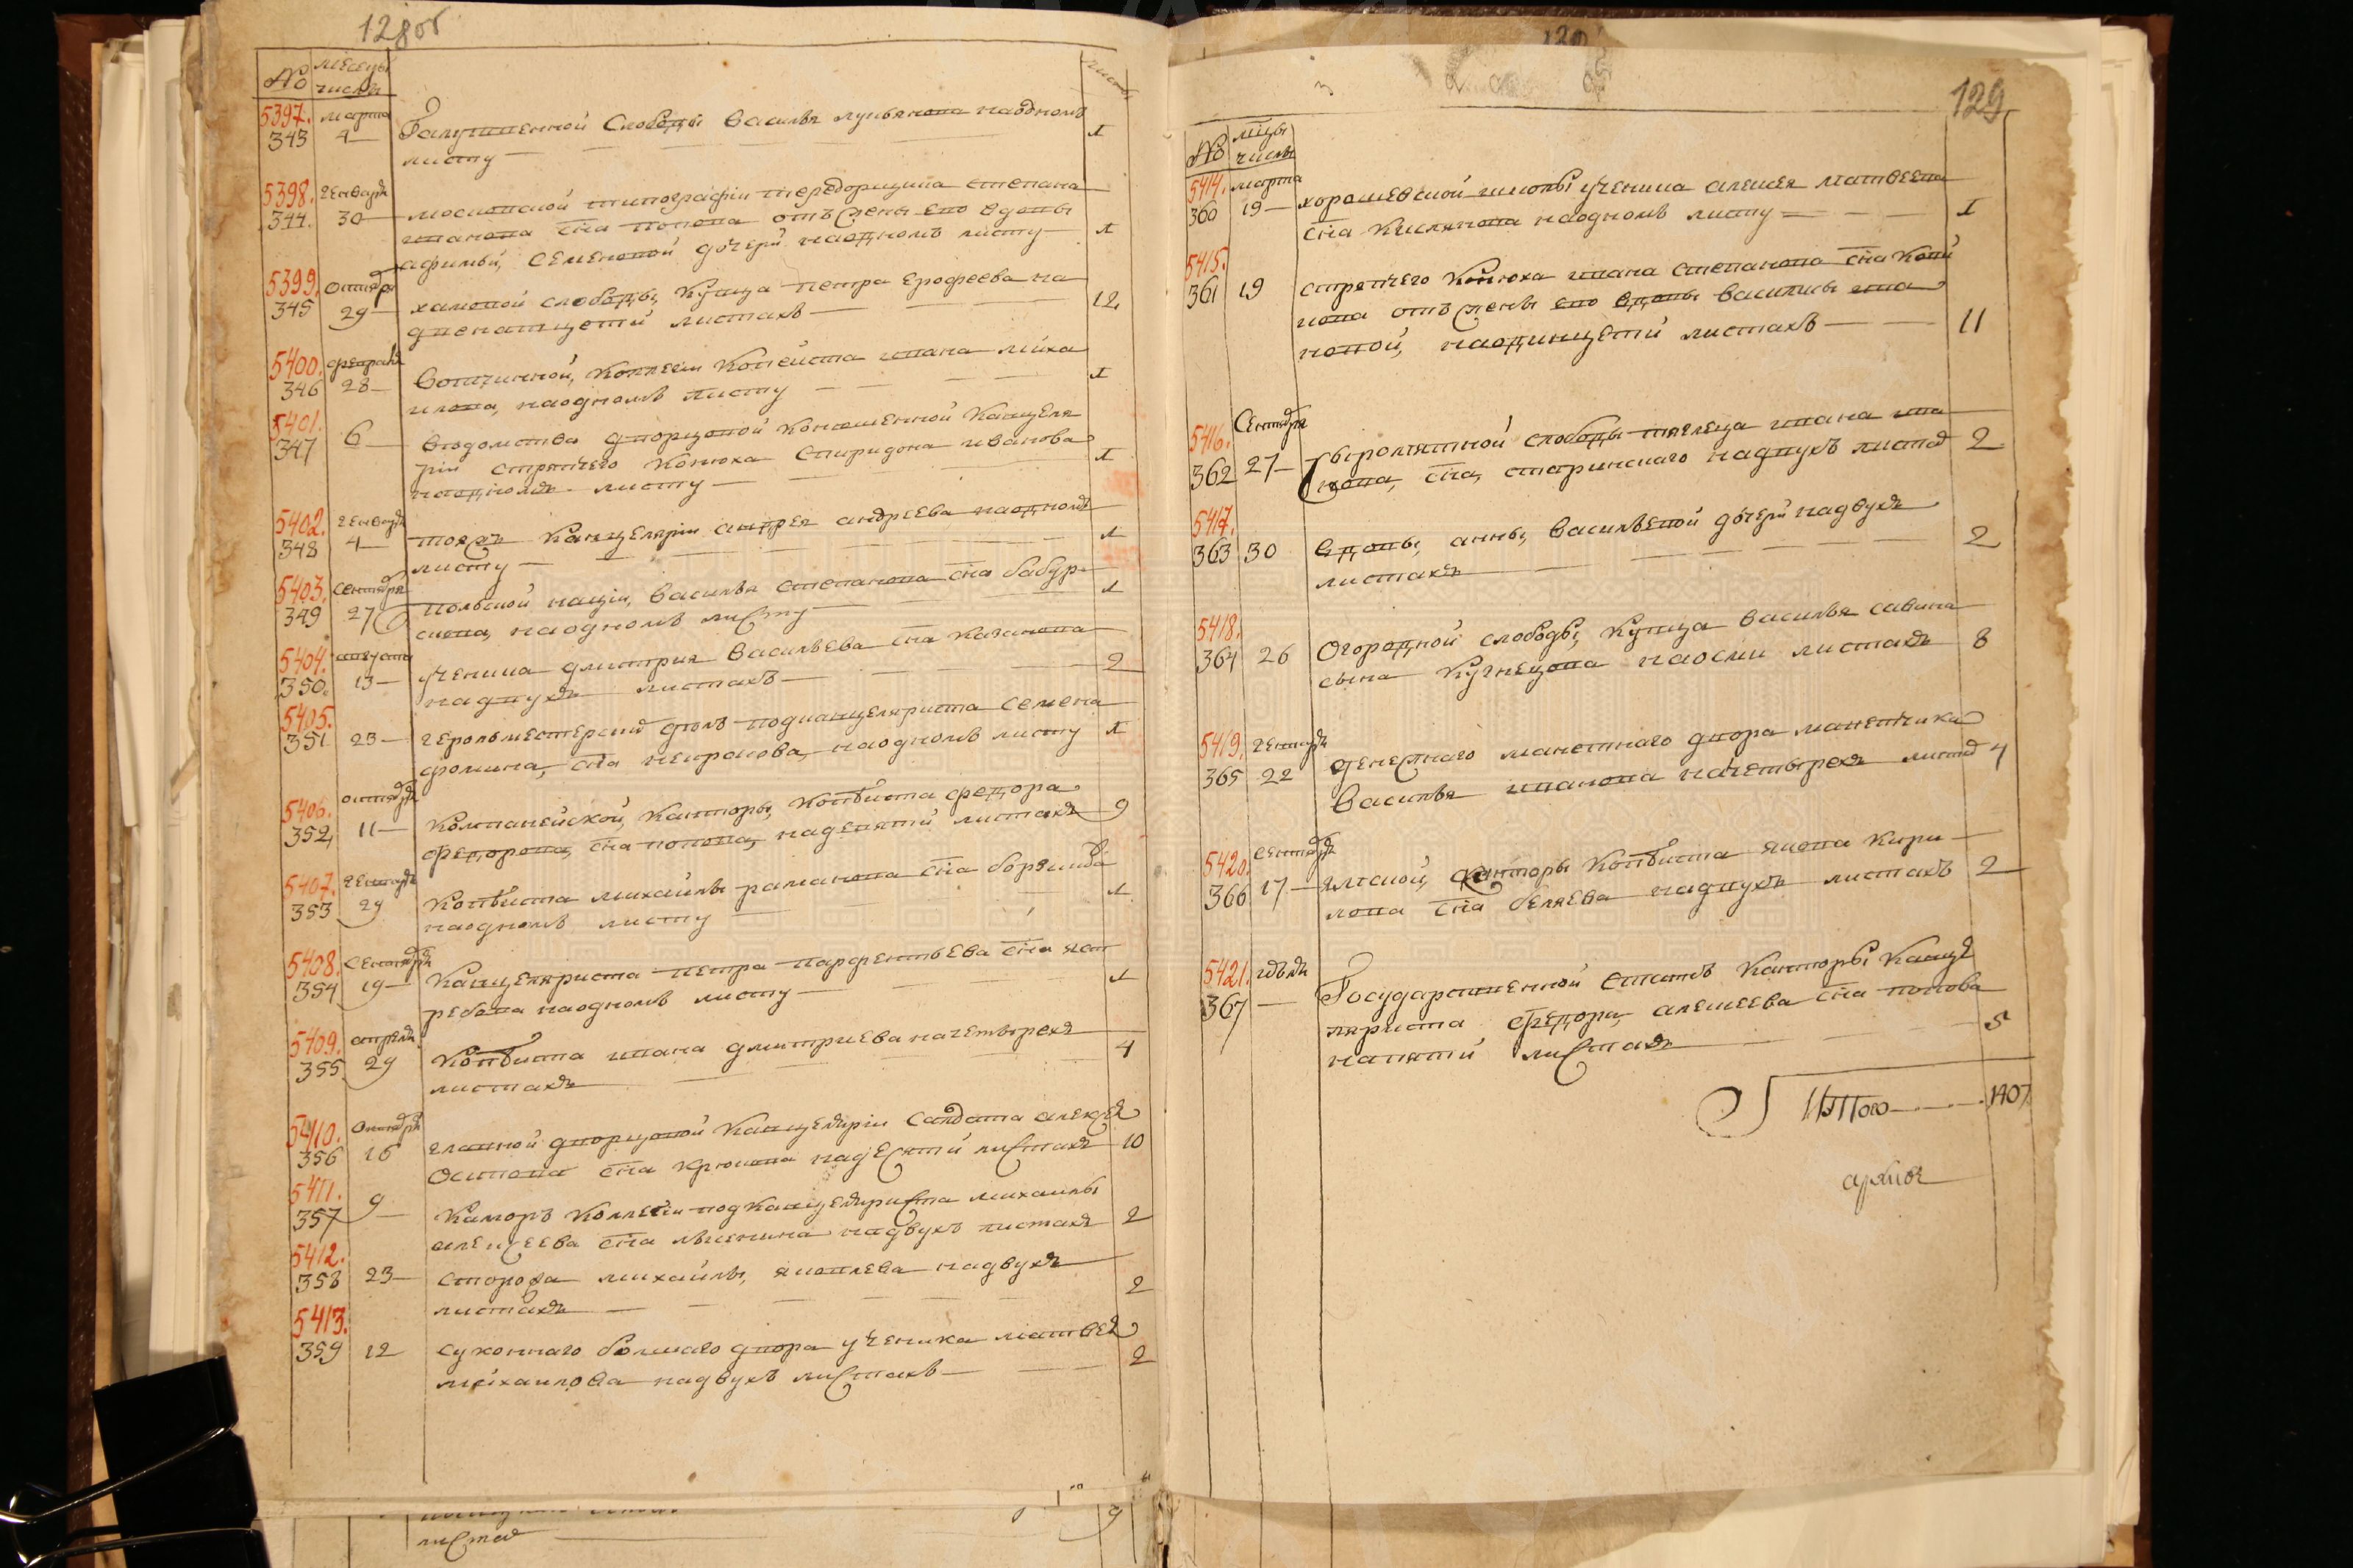 128об
№ месецы числы листы
5397. марта
343 4 Галутвенной Слободы Василья лукьянова наодномъ 1
листу
5398. генваря
344. 30 московской типографіи тередорщика степана
иванова сна попова отъ жены его вдовы
афимьи, семеновой дочери наодномъ листу 1
5399. октября
345 29 хамовой слободы, купца петра ерофеева на
двенатцети листахъ 12
5400. февраля
346 28 вотчинной, коллегіи копеиста ивана миха
илова, наодномъ листу 1
5401.
347 6 ведомства дворцовой конюшенной канцеля
ріи стряпчего конюха спиридона иванова
наодномъ листу 1
5402. генваря
348 4 тояжъ канцеляріи андрея андреева наодномъ
листу 1
5403. сентября
349 27 польской націи, василья степанова сна бабур
кова, наодномъ листу 1
5404. августа
350. 13 ученика дмитрия васильева сна качанова
надвухъ листахъ 2
5405.
351 23 герольместерскихъ делъ подканцеляриста семена
фомина, сна некрасова, наодномъ листу 1
5406. октября
352 11 компанейской, канторы, копѣиста федора
федорова, сна попова, надевяти листахъ 9
5407. генваря
353 29 копѣиста михаилы романова сна борзикова
наодномъ листу 1
5408. сентября
354 19 канцеляриста петра парфентьева сна яст
ребова наодномъ листу 1
5409. апреля
355 29 копѣиста ивана дмитриева начетырехъ
листахъ 4
5410. октября
356 16 главной дворцовой канцеляріи салдата алексея
осипова сна крюкова надесяти листахъ 10
5411.
357 9 каморъ коллегіи подканцеляриста михаилы
алексеева сна лькенина надвухъ листахъ 2
5412.
358 23 сторожа михаилы, яковлева надвухъ
листахъ 2
5413.
359 12 суконнаго болшаго двора ученика матвея
михаилова надвухъ листахъ 2
листах 9
129
№ мцы числы
5414. марта
360 19 хорошевской школы ученика алексея матвеева
сна кислякова наодномъ листу 1
5415.
361 19 стряпчего конюха ивана степанова сна копы
кова отъ жены его вдовы василисы ива
новой, наодинцети листахъ 11
5416. Сентября
362 27 сыромятной слободы тяглеца ивана ива
нова, сна, старинскаго надвухъ листах 2
5417.
363 30 вдовы, анны, васильевой дочери надвухъ
листахъ 2
5418.
364 26 Огородной слободы, купца василья савина
сына кузнецова наосми листахъ 8
5419. генваря
365 22 денежнаго манетнаго двора манетчика
василья иванова начетырехъ листах 4
5420. сентября
366 17 ямской, канторы копѣиста якова кири
лова сна беляева надвухъ листахъ 2
5421. июля
367 Государственной статсъ канторы канце
ляриста федора, алексеева сна попова
напяти листахъ 5
Итого 1407